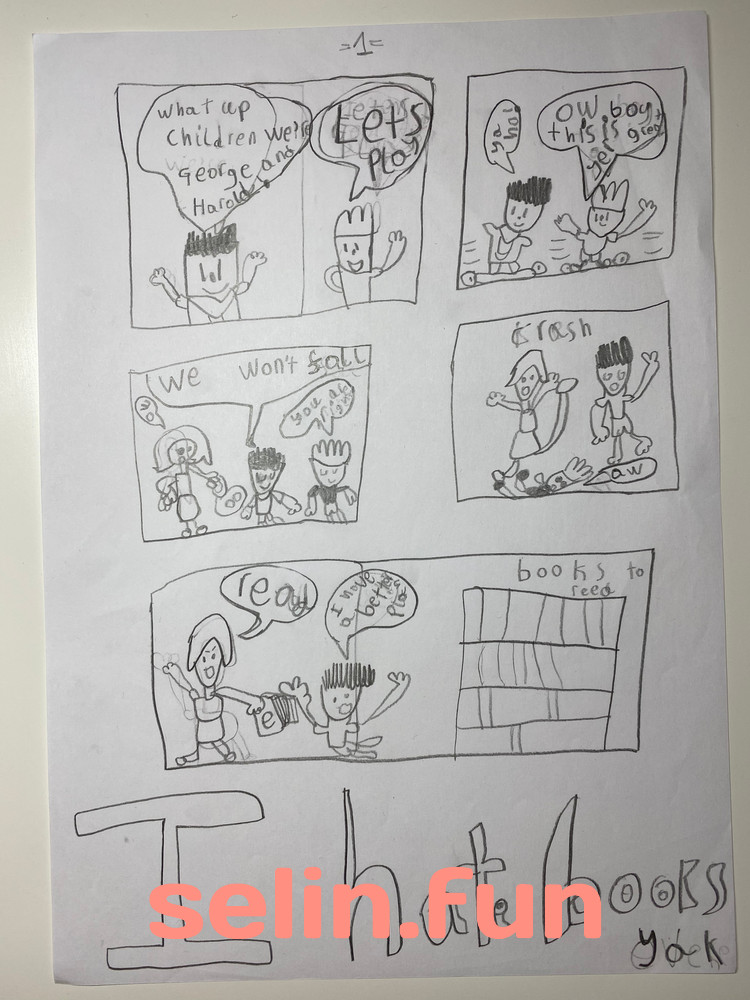 =1=
what up
children we're
George and
Harold
Lets
play
ya
ho!
OW boy
this is great
yer
We won't fall
no
you are
krash
aw
read
I have
a better
books to
reed
e
I hate books
yak
selin.fun